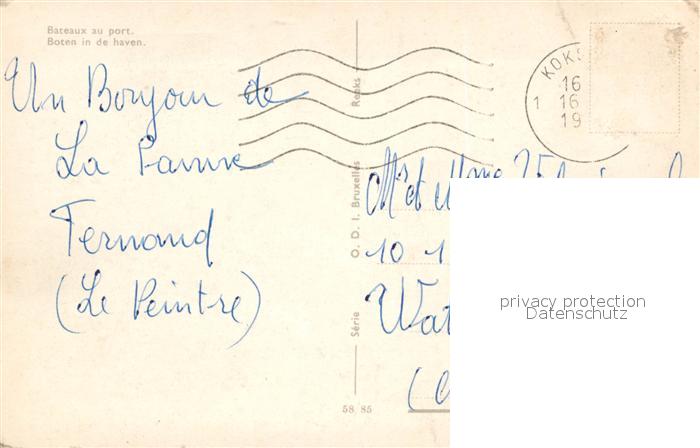 Bateaux au port.
Boten in de haven.
Un Bonjour de
La Panne
Fernand
(Le Peintre)
Série
O. D. I. Bruxelles
Reeks
58 85
KOKS
16
1 16
19
Mr et Mme
10 1
Wat
privacy protection
Datenschutz